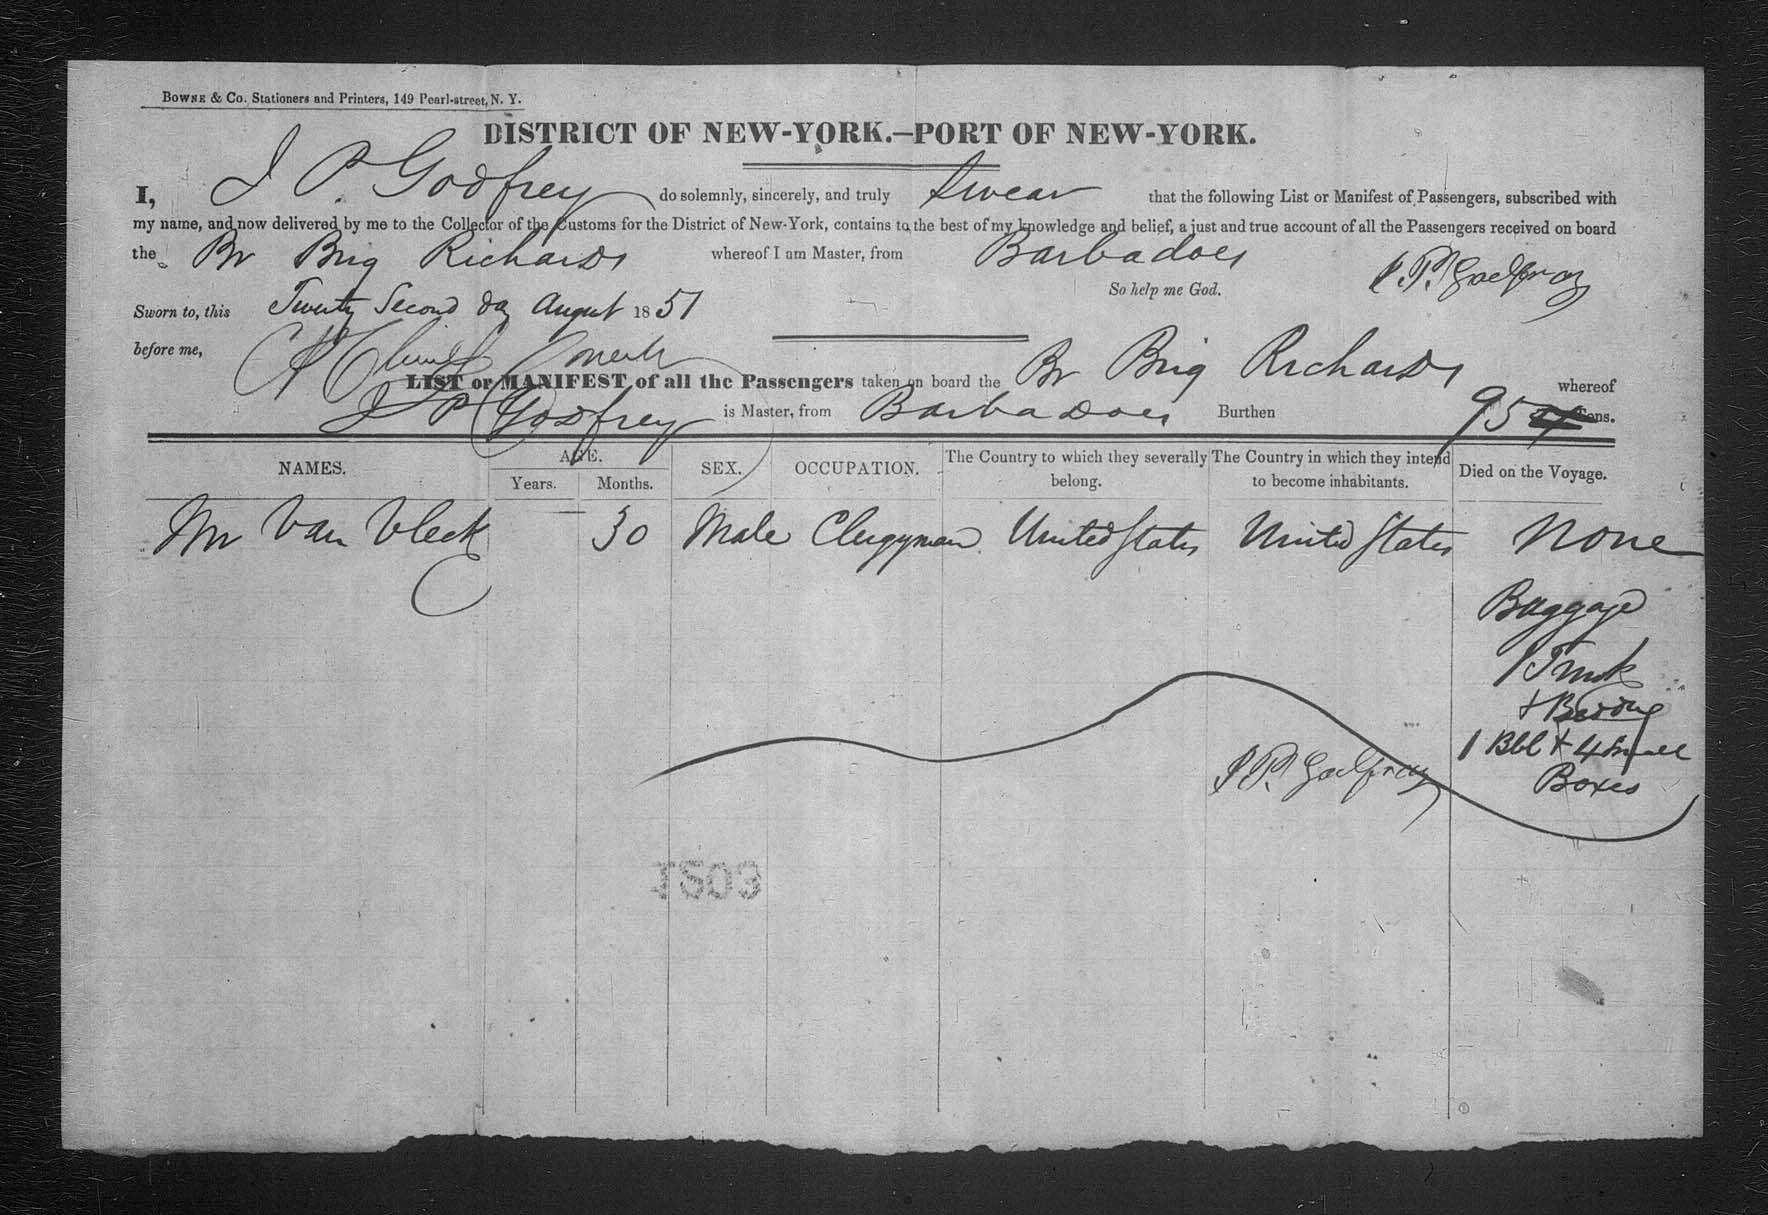 BOWNE & Co. Stationers and Printers, 149 Pearl-street, N. Y.
DISTRICT OF NEW-YORK.—PORT OF NEW-YORK.
I, J P. Godfrey do solemnly, sincerely, and truly Swear that the following List or Manifest of Passengers, subscribed with
my name, and now delivered by me to the Collector of the Customs for the District of New-York, contains to the best of my knowledge and belief, a just and true account of all the Passengers received on board
the Br Brig Richards whereof I am Master, from Barbadoes
So help me God. J. P. Godfray
Sworn to, this Twenty Second day August 1851
before me,
LIST or MANIFEST of all the Passengers taken on board the Br Brig Richards whereof
J P Godfrey is Master, from Barbadoes Burthen 95 Tons.
NAMES. AGE. SEX. OCCUPATION. The Country to which they severally belong. The Country in which they intend to become inhabitants. Died on the Voyage.
Years. Months.
Mr Van Vleck 30 Male Clergyman United States United States None
Baggage
1 Trunk
+ Bedding
1 Bbl + 4 Small
Boxes
J P. Godfray
TS03